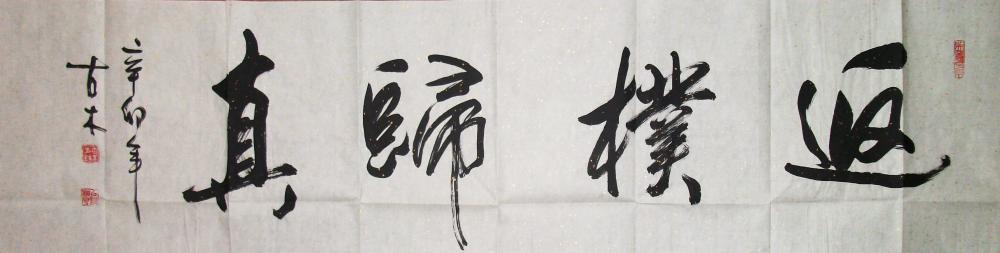 返樸歸真
辛卯年
古木